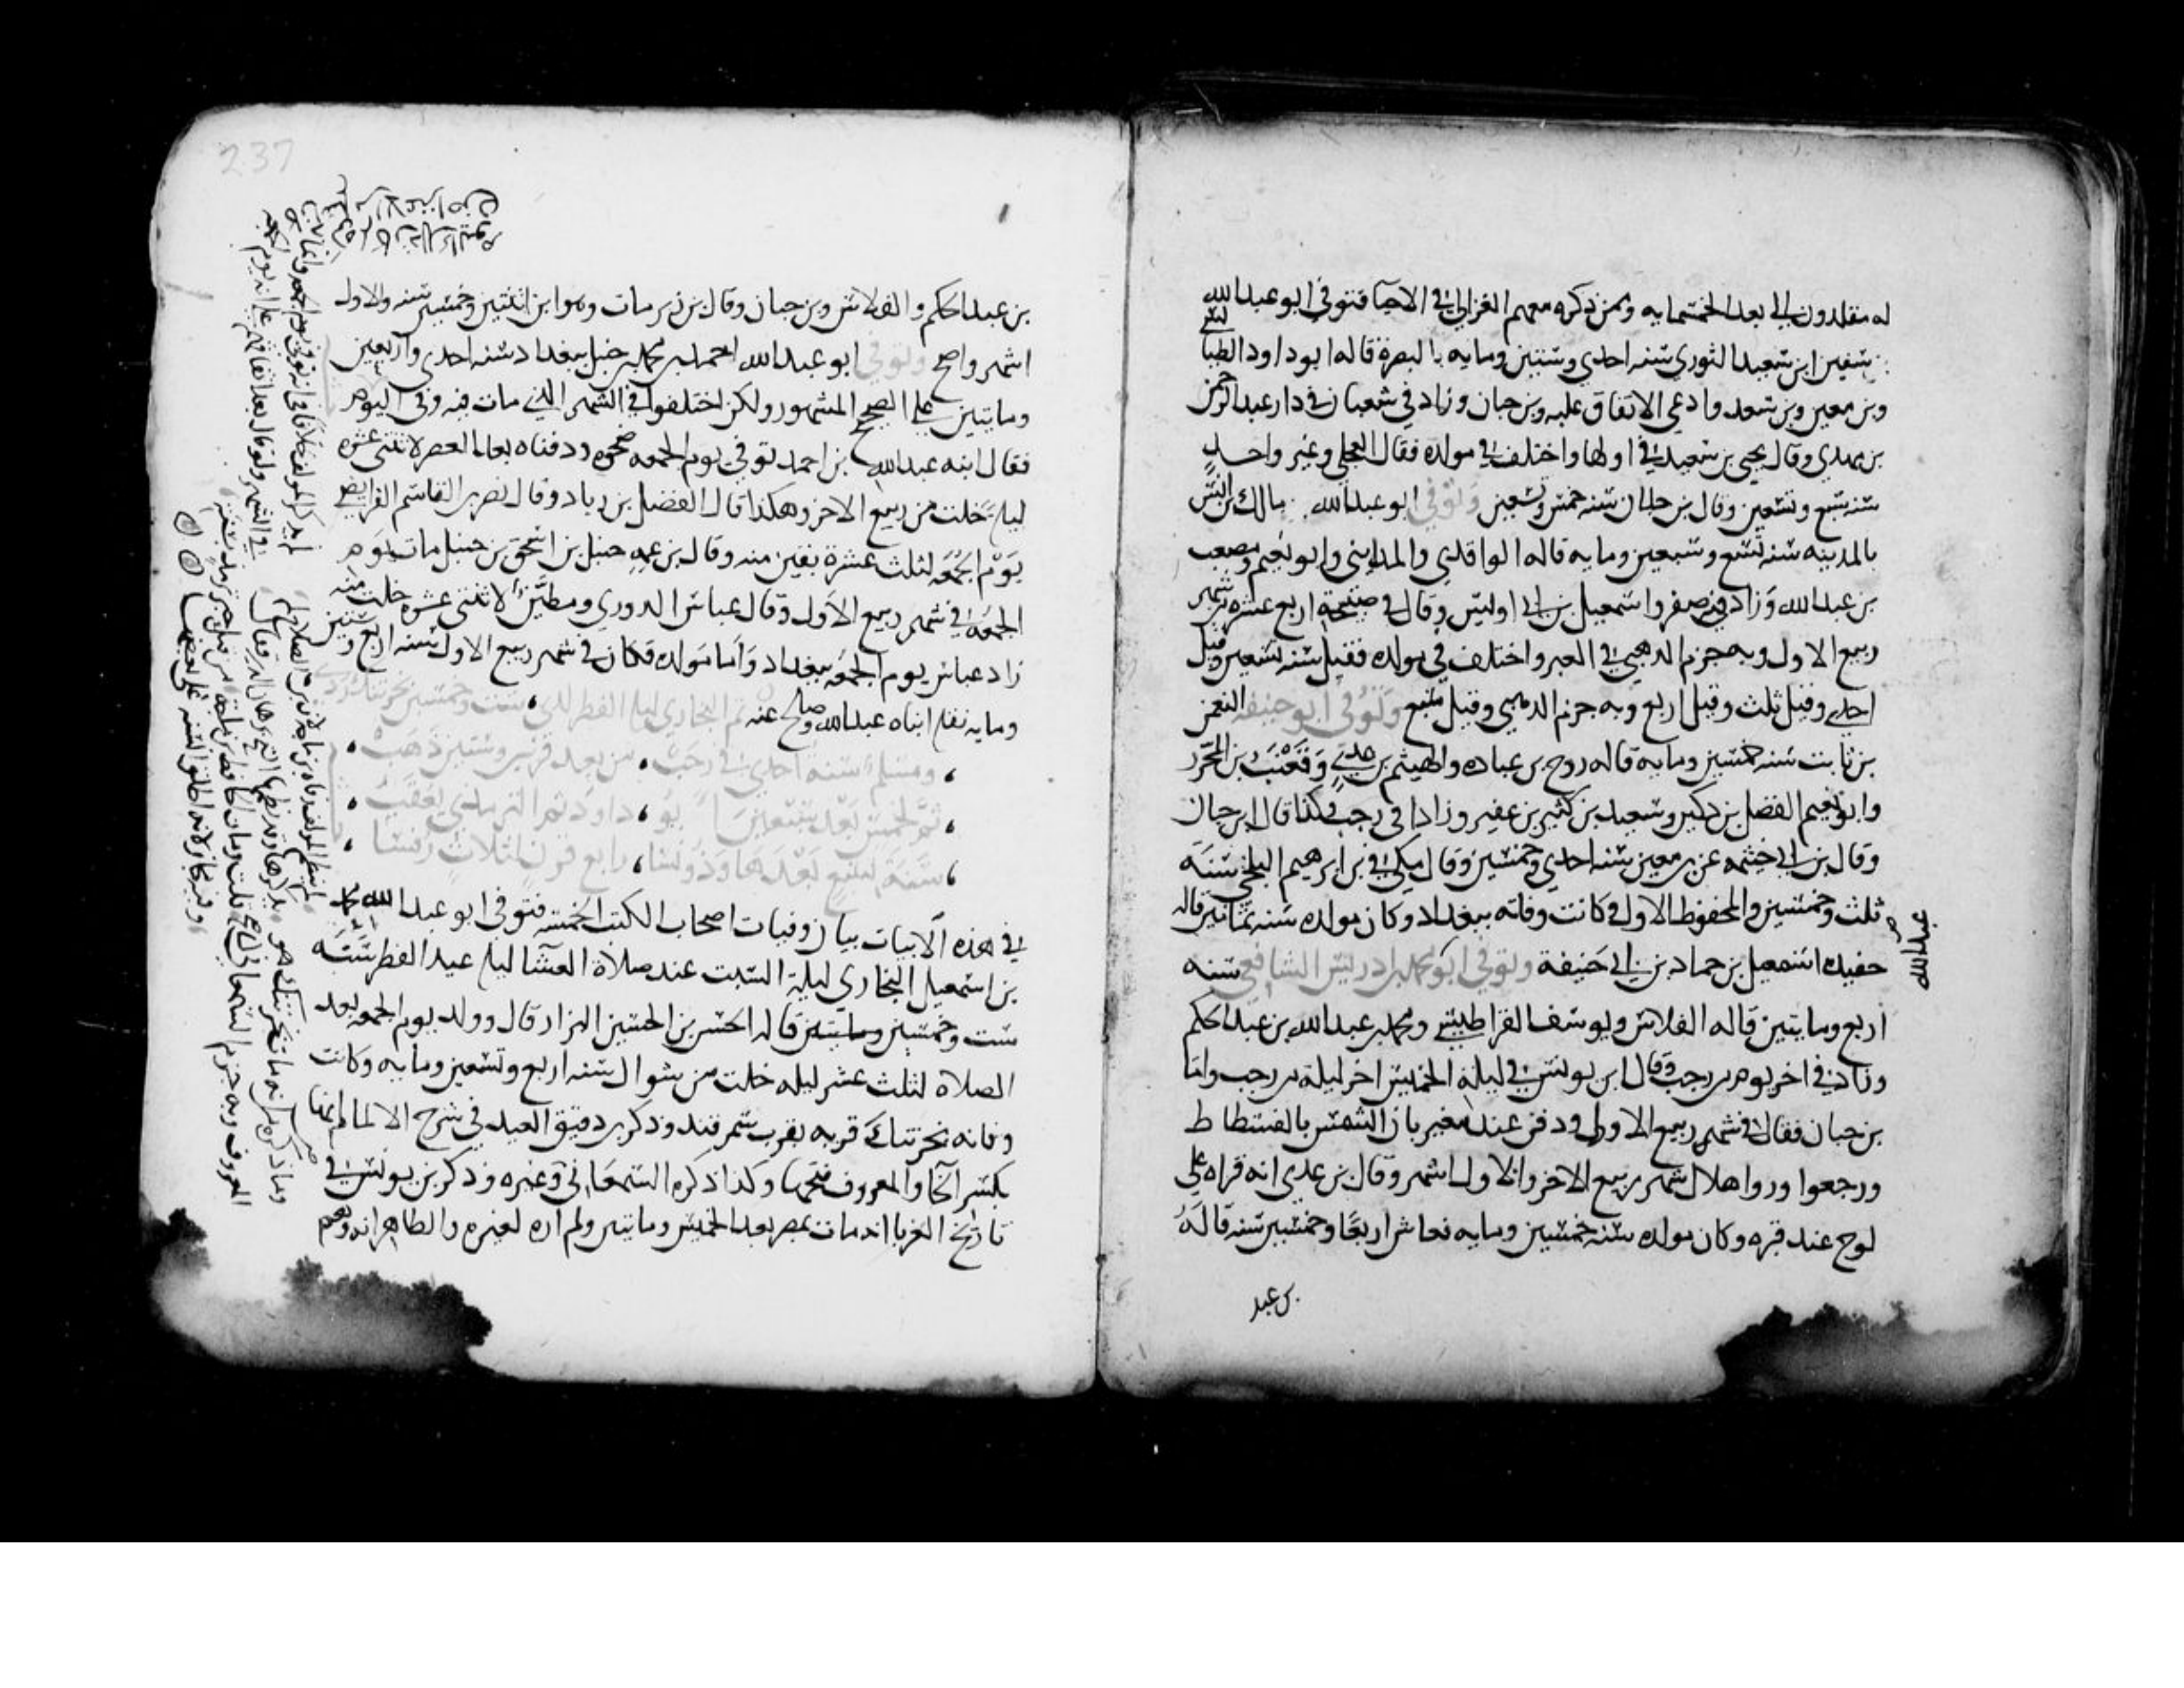 له مقلدون الى بعد الخمسمايه وممن ذكره معهم الغزالي في الاحيا فتوفي ابو عبد الله
سفين ابن سعيد الثوري سنه احدى وستين ومايه بالبصرة قاله ابو داود الطيالسي
وبن معين وبن سعد وادعى الاتفاق عليه وبن حبان وزاد في شعبان في دار عبد الرحمن
بن مهدي وقال يحيى بن سعيد في اولها واختلف في مولده فقال العجلي وغير واحد
سنه سبع وتسعين وقال بن حبان سنه خمس وتسعين وتوفي ابو عبد الله مالك بن انس
بالمدينه سنه تسع وسبعين ومايه قاله الواقدي والمدايني وابو نعيم ومصعب
بن عبد الله وزاد في صفر واسمعيل بن ابي اويس وقال في صبيحة اربع عشره من شهر
ربيع الاول وبه جزم الذهبي في العبر واختلف في مولده فقيل سنه تسعين وقيل
احدى وقيل ثلث وقيل اربع وبه جزم الذهبي وقيل سبع وتوفي ابو حنيفه النعمن
بن ثابت سنه خمسين ومايه قاله روح بن عباده والهيثم بن عدي وقعنب بن المحرر
وابو نعيم الفضل بن دكين وسعيد بن كثير بن عفير وزادا في رجب وكذا قال ابن حبان
وقال بن ابي خيثمه عن بن معين سنه احدى وخمسين وقال مكي بن ابرهيم البلخي سنة
ثلث وخمسين والمحفوظ الاول وكانت وفاته ببغداد وكان مولده سنه ثمانين قاله
حفيده اسمعيل بن حماد بن ابي حنيفة وتوفي ابو عبد الله محمد بن ادريس الشافعي سنه
اربع ومايتين قاله الفلاس ويوسف القراطيسي ومحمد بن عبد الله بن عبد الحكم
وزاد في اخر يوم من رجب وقال ابن يونس في ليلة الخميس اخر ليلة من رجب واما
بن حبان فقال في شهر ربيع الاول ودفن عند مغيربان الشمس بالفسطاط
ورجعوا وراوا هلال شهر ربيع الاخر والاول اشهر وقال بن عدي انه قراه على
لوح عند قبره وكان مولده سنه خمسين ومايه فعاش اربعا وخمسين سنه قاله
بن عبد
237
بن عبد الحكم والفلاس وبن حبان وقال بن زبر مات وهو ابن اثنتين وخمسين سنه والاول
اشهر واصح وتوفي ابو عبد الله احمد بن محمد بن حنبل ببغداد سنه احدى واربعين
ومايتين على الصحيح المشهور ولكن اختلفوا في الشهر الذي مات فيه وفي اليوم
فقال ابنه عبد الله بن احمد توفي يوم الجمعه ضحوه ودفناه بعد العصر لاثنتي عشره
ليله خلت من ربيع الاخر وهكذا قال الفضل بن زياد وقال نصر بن القاسم الفرايضي
يوم الجمعه لثلث عشرة بقين منه وقال بن عمه حنبل بن اسحق بن حنبل مات يوم
الجمعه في شهر ربيع الاول وقال عباس الدوري ومطين لاثنتي عشره خلت منه
زاد عباس يوم الجمعه ببغداد واما مولده فكان في شهر ربيع الاول سنه اربع وستين
ومايه نقله ابناه عبد الله وصالح عنه ثم البخاري ليله الفطر لدى ، ست وخمسين بخرتنك ردى
، ومسلم سنه احدى في رجب ، من بعد قرنين وستين ذهب ،
، ثم لخمس بعد سبعين ابو ، داود ثم الترمذي يعقب ،
، سنة تسع بعدها وذو نسا ، رابع قرن لثلاث رفسا ،
في هذه الابيات بيان وفيات اصحاب الكتب الخمسه فتوفي ابو عبد الله محمد
بن اسمعيل البخاري ليلة السبت عند صلاة العشا ليله عيد الفطر سنه
ست وخمسين ومايتين قاله الحسن بن الحسين البزار قال وولد يوم الجمعه بعد
الصلاه لثلث عشر ليله خلت من شوال سنه اربع وتسعين ومايه وكانت
وفاته بخرتنك قريه بقرب سمرقند وذكر بن دقيق العيد في شرح الالمام انها
بكسر الخا والمعروف فتحها وكذا ذكره السمعاني وغيره وذكر بن يونس في
تاريخ الغربا انه مات بمصر بعد الخمسين ومايتين ولم اره لغيره والظاهر انه وهم